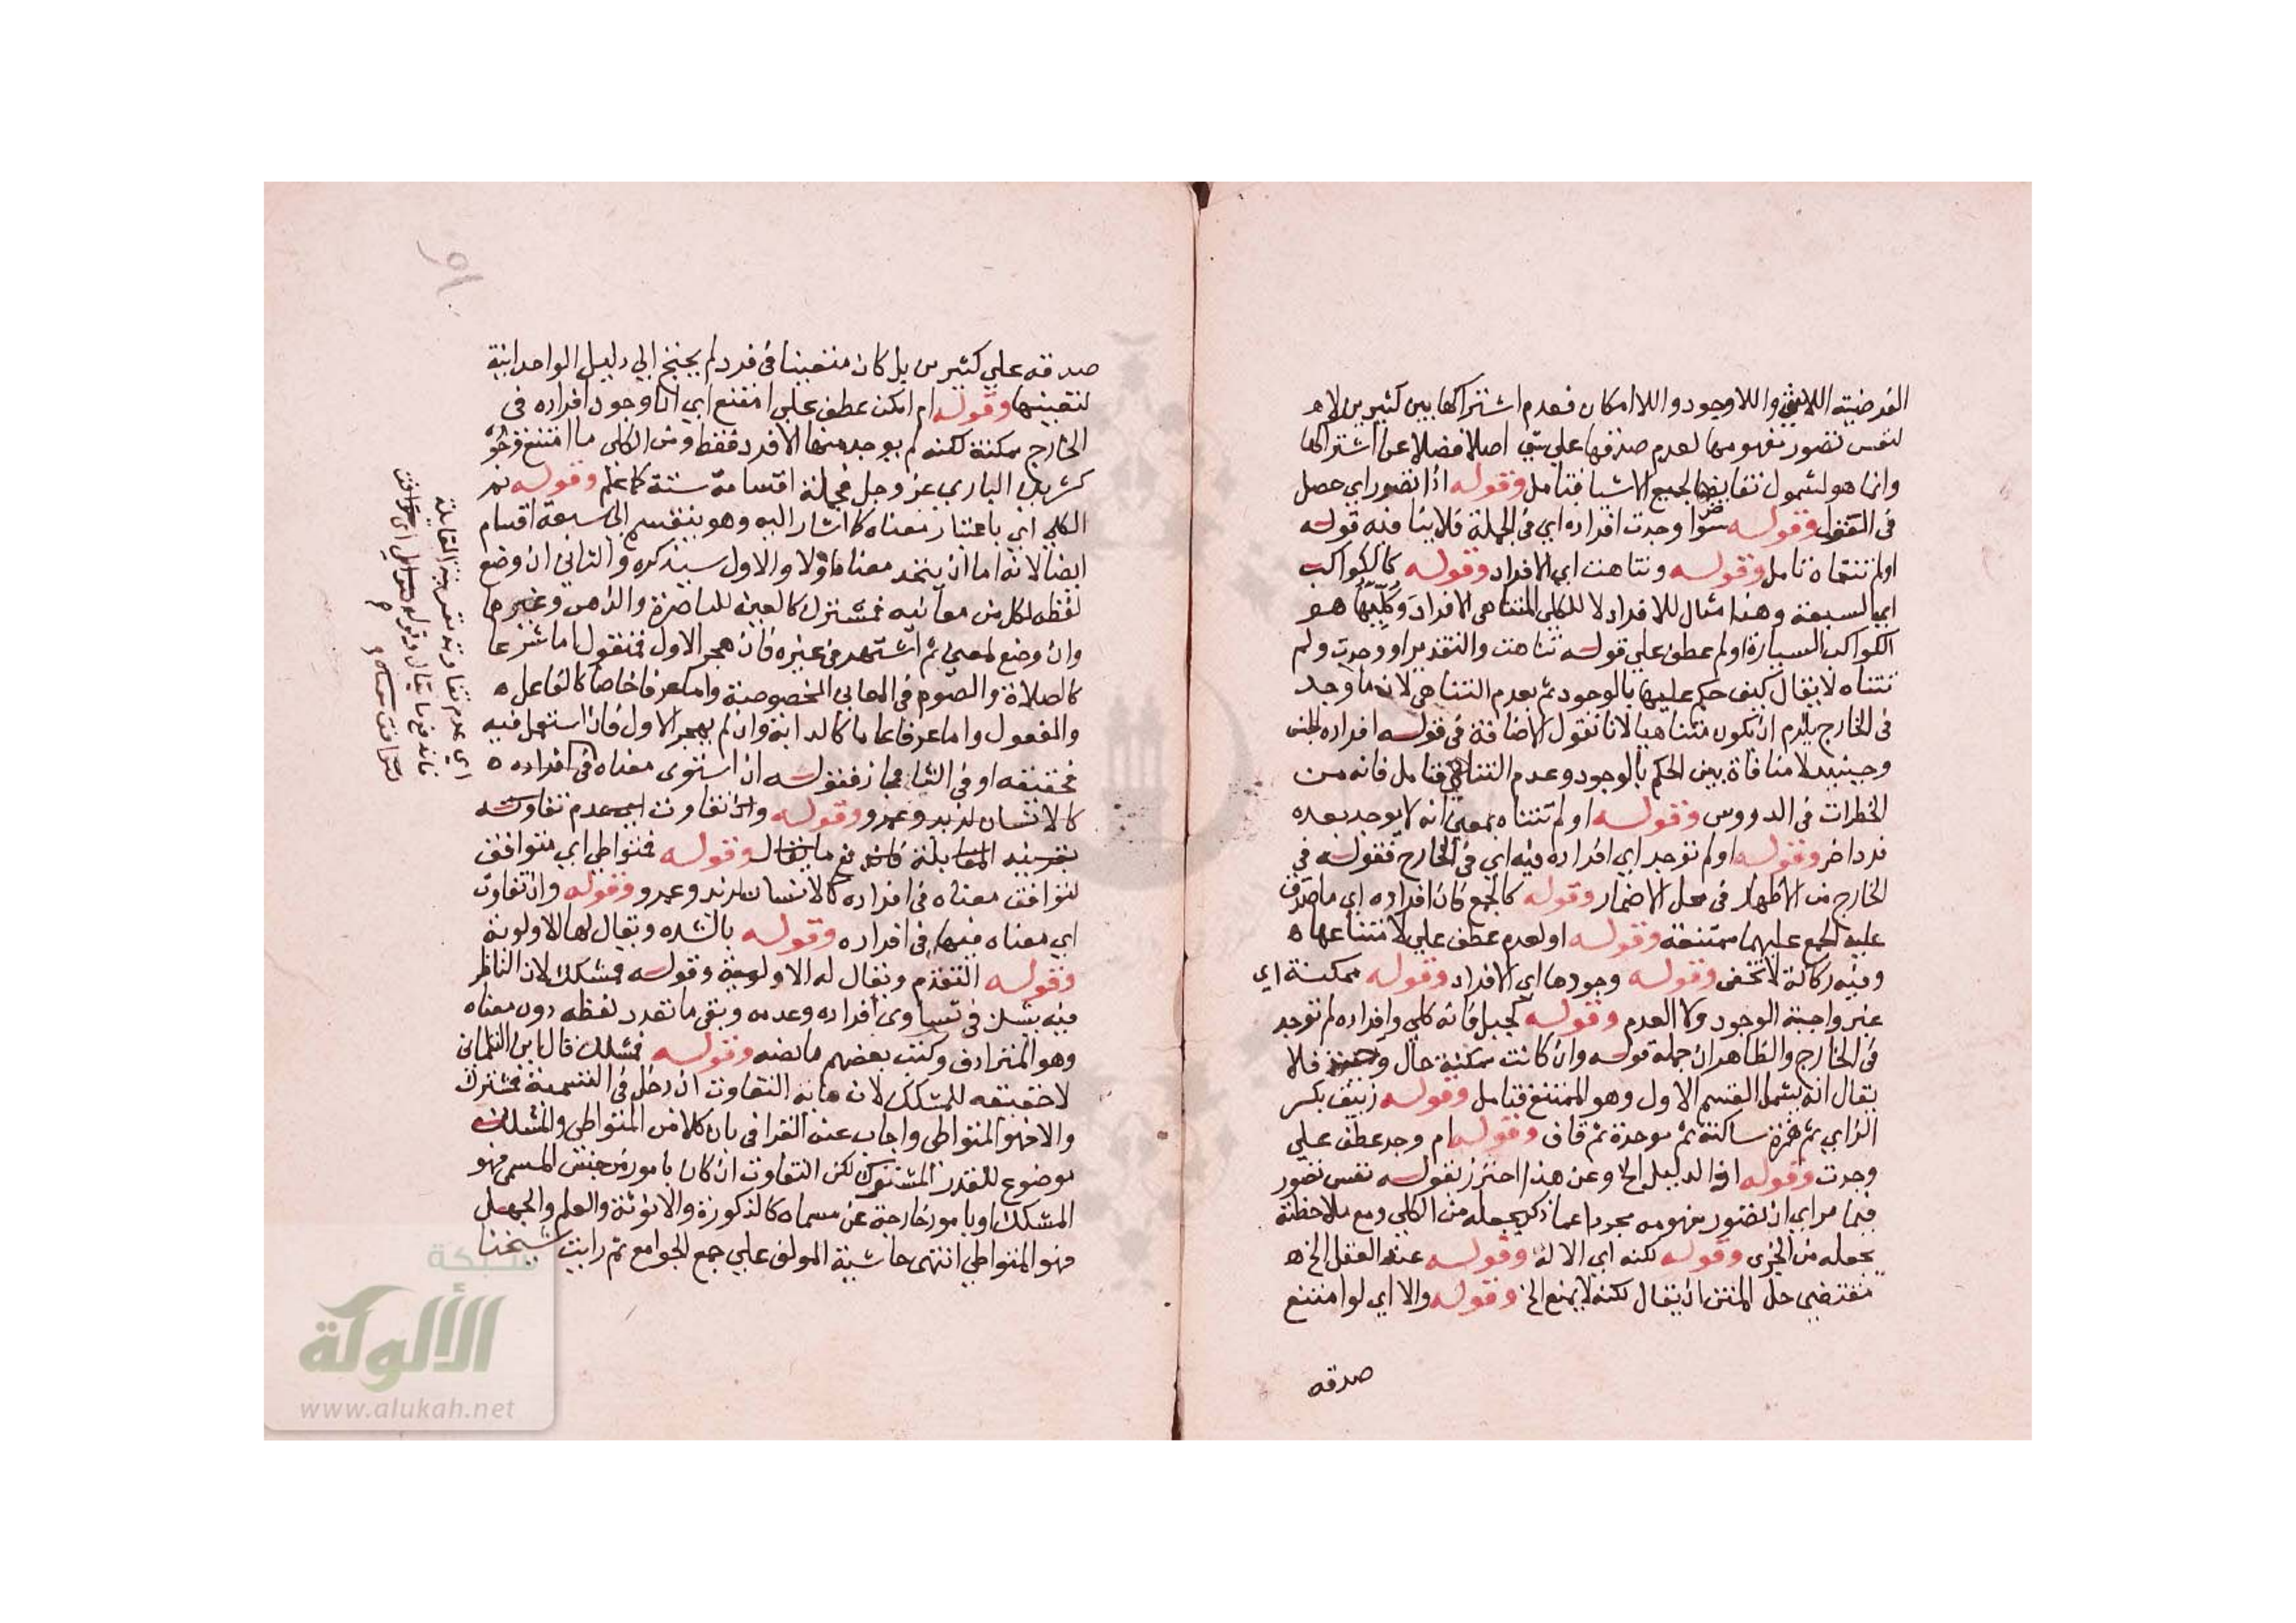 الفرضية اللاشي واللاوجود واللاامكان فعدم اشتراكها بين كثيرين لا هو
لنفس تصور مفهومها لعدم صدقها علي شي اصلا فضلا عن اشتراكها
وانما هو لشمول نقايضها لجميع الاشيا فتامل وقوله اذا تصور اي حصل
في العقل وقوله سوا وجدت افراده اي في الجملة فلا ينافيه قوله
او لم تتناه تامل وقوله وتناهت اي الافراد وقوله كالكواكب
اي السبعة وهذا مثال للافراد لا للكلي المتناهي الافراد وكليها هو
الكواكب السيارة او لم عطف علي قوله تناهت والتقدير او وجدت ولم
تتناه لا يقال كيف حكم عليها بالوجود ثم بعدم التناهي لان ما وجد
في الخارج يلزم ان يكون متناهيا لانا نقول الاضافة في قوله افراده للجنس
وحينيذ لا منافاة بين الحكم بالوجود وعدم التناهي فتامل فانه من
الخطرات في الدروس وقوله او لم تتناه بمعني انه لا يوجد بعده
فرد اخر وقوله او لم توجد اي افراده فيه اي في الخارج فقوله في
الخارج من الاظهار في محل الاضمار وقوله كالجمع فان افراده اي ما صدق
عليه الجمع عليهما ممتنعة وقوله او لعدم عطف علي لامتناعها ه
وفيه ركاكة لا تخفى وقوله وجودها اي الافراد وقوله ممكنة اي
غير واجبة الوجود ولا العدم وقوله كجبل فانه كلي وافراده لم توجد
في الخارج والظاهر ان جملة قوله وان كانت ممكنة حال وحينيذ فلا
يقال انه يشمل القسم الاول وهو الممتنع فتامل وقوله زيبق بكسر
الزاي ثم همزة ساكنة ثم موحدة ثم قاف وقوله ام وجد عطف علي
وجدت وقوله اذ الدليل الخ وعن هذا احترز بقوله نفس تصور
فيما مر اي ان تصور مفهومه مجردا عما ذكر يجعله من الكلي ومع ملاحظة
يجعله من الجزي وقوله لكنه اي الاله وقوله عند العقل الخ ه
مقتضي حل المتن ان يقال لكنه لا يمنع الخ وقوله والا اي لو امتنع
صدقه
صدقه علي كثيرين بل كان متعينا في فرد لم يحتج الي دليل الواحدانية
لتعينها وقوله ام امكن عطف علي امتنع اي انا وجود افراده في
الخارج ممكنة لكنه لم يوجد منها الا فرد فقط ومن الكلي ما امتنع وجود
كشريك الباري عز وجل فجملة اقسامه ستة كما علم وقوله ثم
الكلي اي باعتبار معناه كما اشار اليه وهو ينقسم الي سبعة اقسام
ايضا لانه اما ان يتحد معناه اولا والاول سيذكره والثاني ان وضع
لفظه لكل من معانيه فمشترك كالعين للباصرة والذهب وغيرها
وان وضع لمعني ثم اشتهر في غيره فان هجر الاول فمنقول اما شرعا
كالصلاة والصوم في المعاني المخصوصة واما عرفا خاصا كالفاعل ه
والمفعول واما عرفا عاما كالدابة وان لم يهجر الاول فان استعمل فيه
فحقيقه او في الثاني مجاز فقوله ان استوى معناه في افراده ه
كالانسان لزيد وعمرو وقوله وان تفاوت اي عدم تفاوته
بقرينه المقابلة فاندفع ما يقال وقوله فمتواطي اي متوافق
لتوافق معناه في افراده كالانسان لزيد وعمرو وقوله وان تفاوت
اي معناه فيها في افراده وقوله بالشده ويقال لها الاولوية
وقوله التقدم ويقال له الاولية وقوله فمشكك لان الناظر
فيه يشك في تساوي افراده وعدمه وبقي ما تعدد لفظه دون معناه
وهو المترادف وكتب بعضهم ما نصه وقوله فمشكك قال ابن التلمساني
لا حقيقه للمشكك لان ما به التفاوت ان دخل في التسمية فمشترك
والا فهو المتواطي واجاب عنه القرافي بان كلا من المتواطي والمشكك
موضوع للقدر المشترك لكن التفاوت ان كان بامور من جنس المسمي فهو
المشكك او بامور خارجة عن مسماه كالذكورة والانوثة والعلم والجهل
فهو المتواطي انتهى حاشية المولف علي جمع الجوامع ثم رايت شيخنا
اي عدم تفاوته بقرينة المقابلة
فاندفع ما يقال وقوله متواطي اي متوافق
لتوافق معناه
شبكة
الألوكة
www.alukah.net